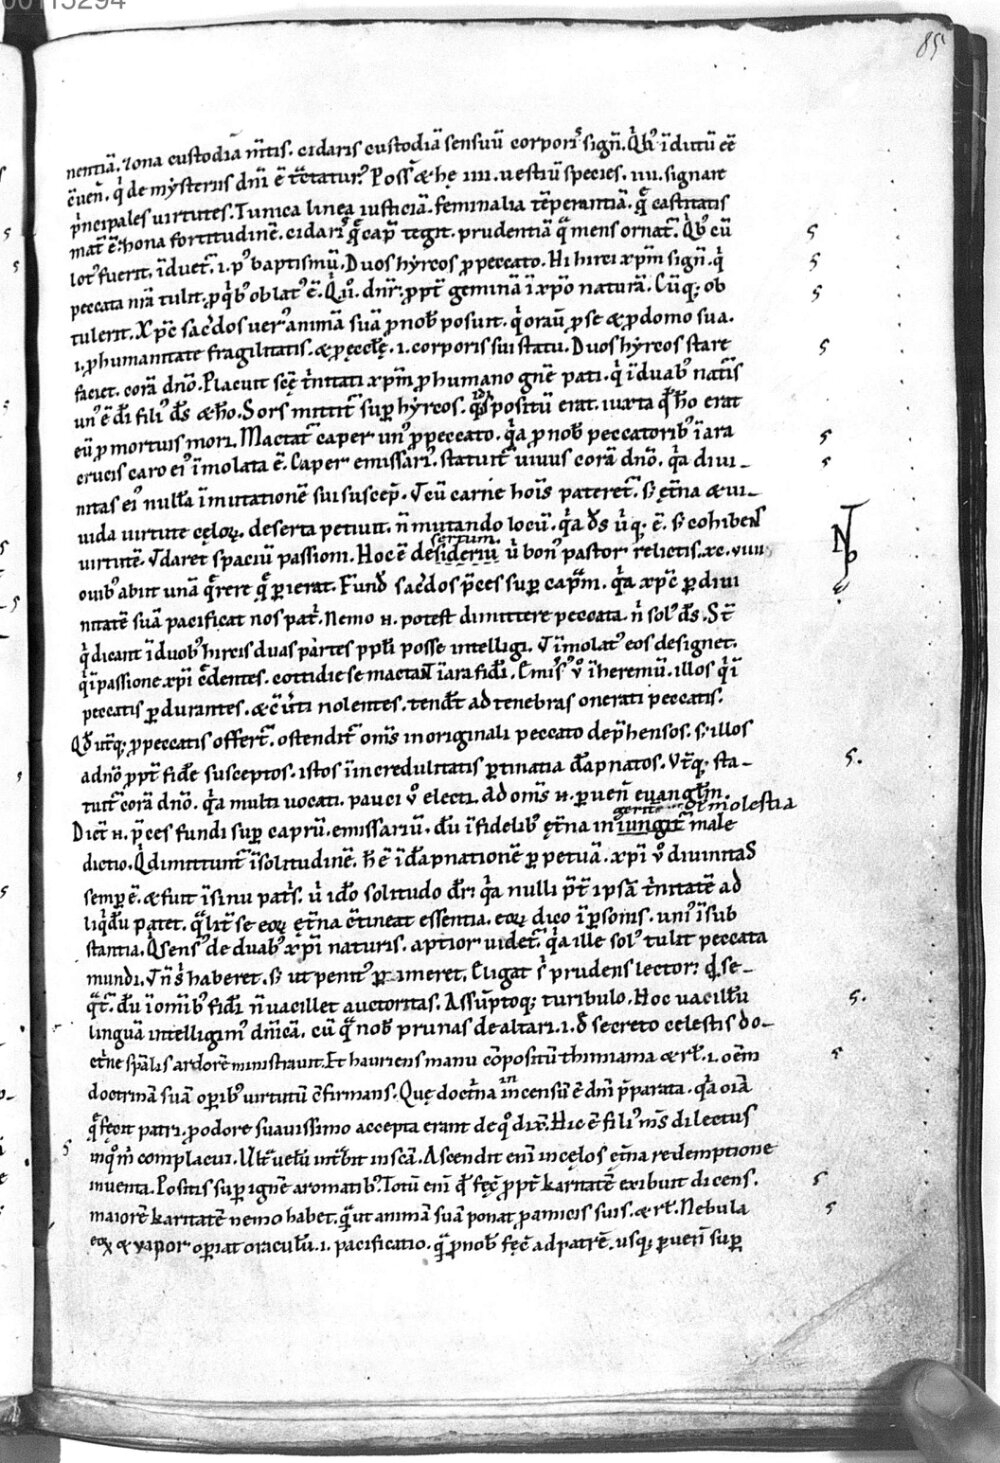 00115294
85
nentiā. zona custodiā m̄tis. cidaris custodiā sensuū corporꝭ sign̄. Q̇bꝰ īdutū eē
c̄uen̄. q̇ de mẏsteriis dn̄i ē t̄ctaturꝰ. Poss̄ & hę IIII. uestiū species. IIII. signare
ṗncipales uirtutes. Tunica linea iusticiā. feminalia tēperantiā. q̄ castitatis
mat̄ ē. zona fortitudinē. cidarꝭ q̄ cap̄ tegit. prudentiā q̄ mens ornat̄. Q̇bꝰ cū
lotꝰ fuerit. īduet̄. i. pꝰ baptismū. Duos hẏrcos ꝓ peccato. Hi hirci xp̄m sign̄. q̇
peccata nr̄a tulit. ꝓ q̇bꝰ oblatꝰ ē. Q̇ iī. dn̄r. ꝓpt̄ geminā ī xp̄o naturā. Cūq; ob
tulerit. Xp̄c sac̄dos uerꝰ animā suā ꝓ nob̄ posuit. q̇ orau̅ ꝓ se & ꝓ domo sua.
i. ꝓ humanitate fragilitatis. & ꝓ ęccl̄ę. i. corporis sui statu. Duos hẏrcos stare
faciet. corā dn̄o. Placuit sc̄ę t̄nitati xp̄m ꝓ humano gn̄e pati. q̇ ī duabꝰ natis̄
unꝰ ē dī filiꝰ ds̄ & hō. Sors mittit̄ suꝑ hẏrcos. positū erat. iuxta qđ hō erat
eū ꝓ mortuis mori. Mactat̄ caper unꝰ ꝓ peccato. q̇a ꝓ nob̄ peccatoribꝰ ī ara
crucis caro eiꝰ īmolata ē. Caper emissariꝰ. statuit̄ uiuus corā dn̄o. q̇a diui-
nitas eiꝰ nullā īmutationē sui suscep̄. Vcū carne hoīs pateret̄. s; ęt̄na & ui-
uida uirtute cęloꝝ. deserta petiuit. n̄ mutando locū. q̇a ds̄ ubiq; ē. s; cohibens
sertum
uirtutē. Vdaret spaciū passioni. Hoc ē desideriū ut bonꝰ pastor relictis. xc. viiii
ouibꝰ abiit unā q̄rere q̄ ꝑierat. Fundit sac̄dos p̄ces super cap̄m. q̇a xp̄c ꝑ diui
nitatē suā pacificat nos pat̄. Nemo n̄. potest dimittere peccata. n̄ solꝰ ds̄. S; t̄
q̇dicant ī duobꝰ hircis duas partes pp̄li posse intelligi. Vt īmolatꝰ eos designet.
q̇ ī passione xp̄i c̄dentes. cottidie se mactant ī ara fidi. Emisꝰ v̊ ī heremū. illos q̇ ī
peccatis ꝑdurantes. & c̄uti nolentes. tendt ad tenebras onerati peccatis.
Qđ utq; ꝓ peccatis offert̄. ostendit om̄s in originali peccato dep̄hensos. s; illos
ad n̄o ꝓpt̄ fide susceptos. istos ī incredulitatis ꝑtinatia dāpnatos. Vtq; sta-
tuit̄ corā dn̄o. q̇a multi uocati. pauci v̊ electi. ad om̄s n̄. ꝑuen̄ euangl̄m.
molestia
Dicit̄ n̄. p̄ces fundi suꝑ caprū. emissariū. dū īfidelibꝰ ęt̄na iniungit̄ male
dictio. Q dimittunt ī solitudinē. h ē ī dāpnationē ꝑpetuā. xp̄i v̊ diuinitas
semꝑ ē. & fuit ī sinu pat̄s. ut ido solitudo dr̄. q̇a nulli p̄t ipsā t̄nitatē ad
liq̇dū patet. q̄lit̄ se eoꝝ ęt̄na c̄tineat essentia. eoꝝ dico ī ꝑsonis. unꝰ ī sub
stantia. Q̇ sensꝰ de duabꝰ xp̄i naturis. aptior uidet̄. q̇a ille solꝰ tulit peccata
mundi. haberet. s; ut penitꝰ ꝑimeret. Eligat s̄ prudens lector. qđ se-
q̄t̄. dū ī om̄ibꝰ fidī n̄ uacillet auctoritas. Assūptoq; turibulo. Hoc uacillū
linguā intelligimꝰ dn̄icā. cū q̄ nob̄ prunas de altari. i. đ secreto celestis do-
ct̄ne sp̄alis ardorē ministrauit. Et hauriens manu cōpositū thimiama & rl̄. i. oēm
doctrinā suā oꝑibꝰ uirtutū c̄firmans. Quę doct̄na incensū ē dn̄i p̄parata. q̇a oīa
q̄ fecit patri. ꝓ odore suauissimo accepta erant de qꝰ dix̄. Hic ē filiꝰ m̄s dilectus
inqꝰ m̄ complacui. Ult̄ uelū intbit in scā. Ascendit eni in cęlos ęt̄na redemptione
inuenta. Positis suꝑ ignē aromatibꝰ. Totū eni qđ fec̄ ꝓpt̄ karitatē exibuit dicens.
maiorē karitatē nemo habet. q̄ ut animā suā ponat ꝓ amicis suis. & rl̄. Nebula
eoꝝ & uapor oꝑiat oraculū. i. pacificatio. q̄ ꝓ nob̄ fęc̄ ad patrē. usq; ꝑuen̄ suꝑ